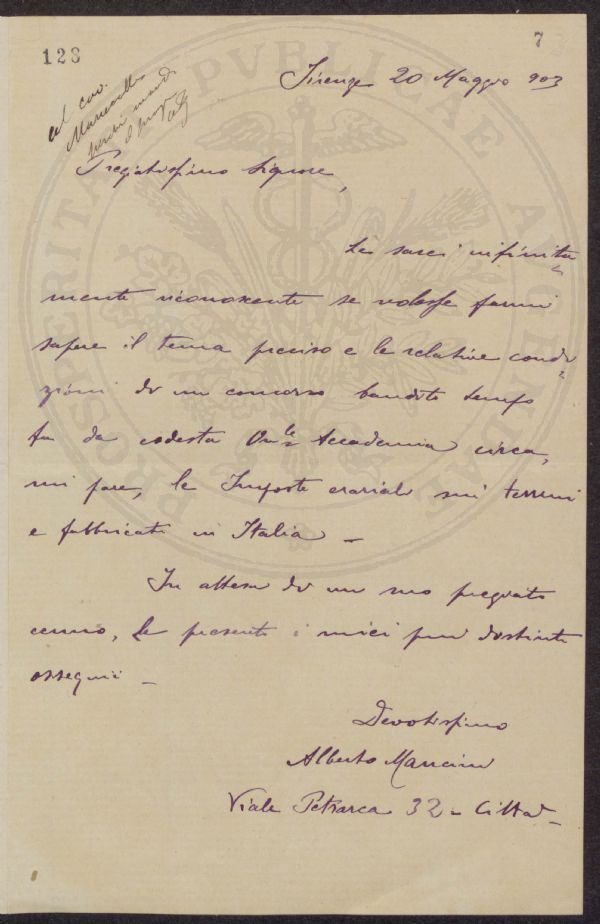 128
7
Firenze 20 Maggio 903
al cav.
perchè mandi
Pregiatissimo Signore,
Le sarei infinita
mente riconoscente se volesse farmi
sapere il tema preciso e le relative condi
zioni di un concorso bandito tempo
fa da codesta On.le Accademia circa,
mi pare, le Imposte erariali sui terreni
e fabbricati in Italia —
In attesa di un suo pregiato
cenno, Le presento i miei più distinti
ossequi —
Devotissimo
Alberto Mancini
Viale Petrarca 32 - Città -
PROSPERITATI PVBLICAE AVGENDAE